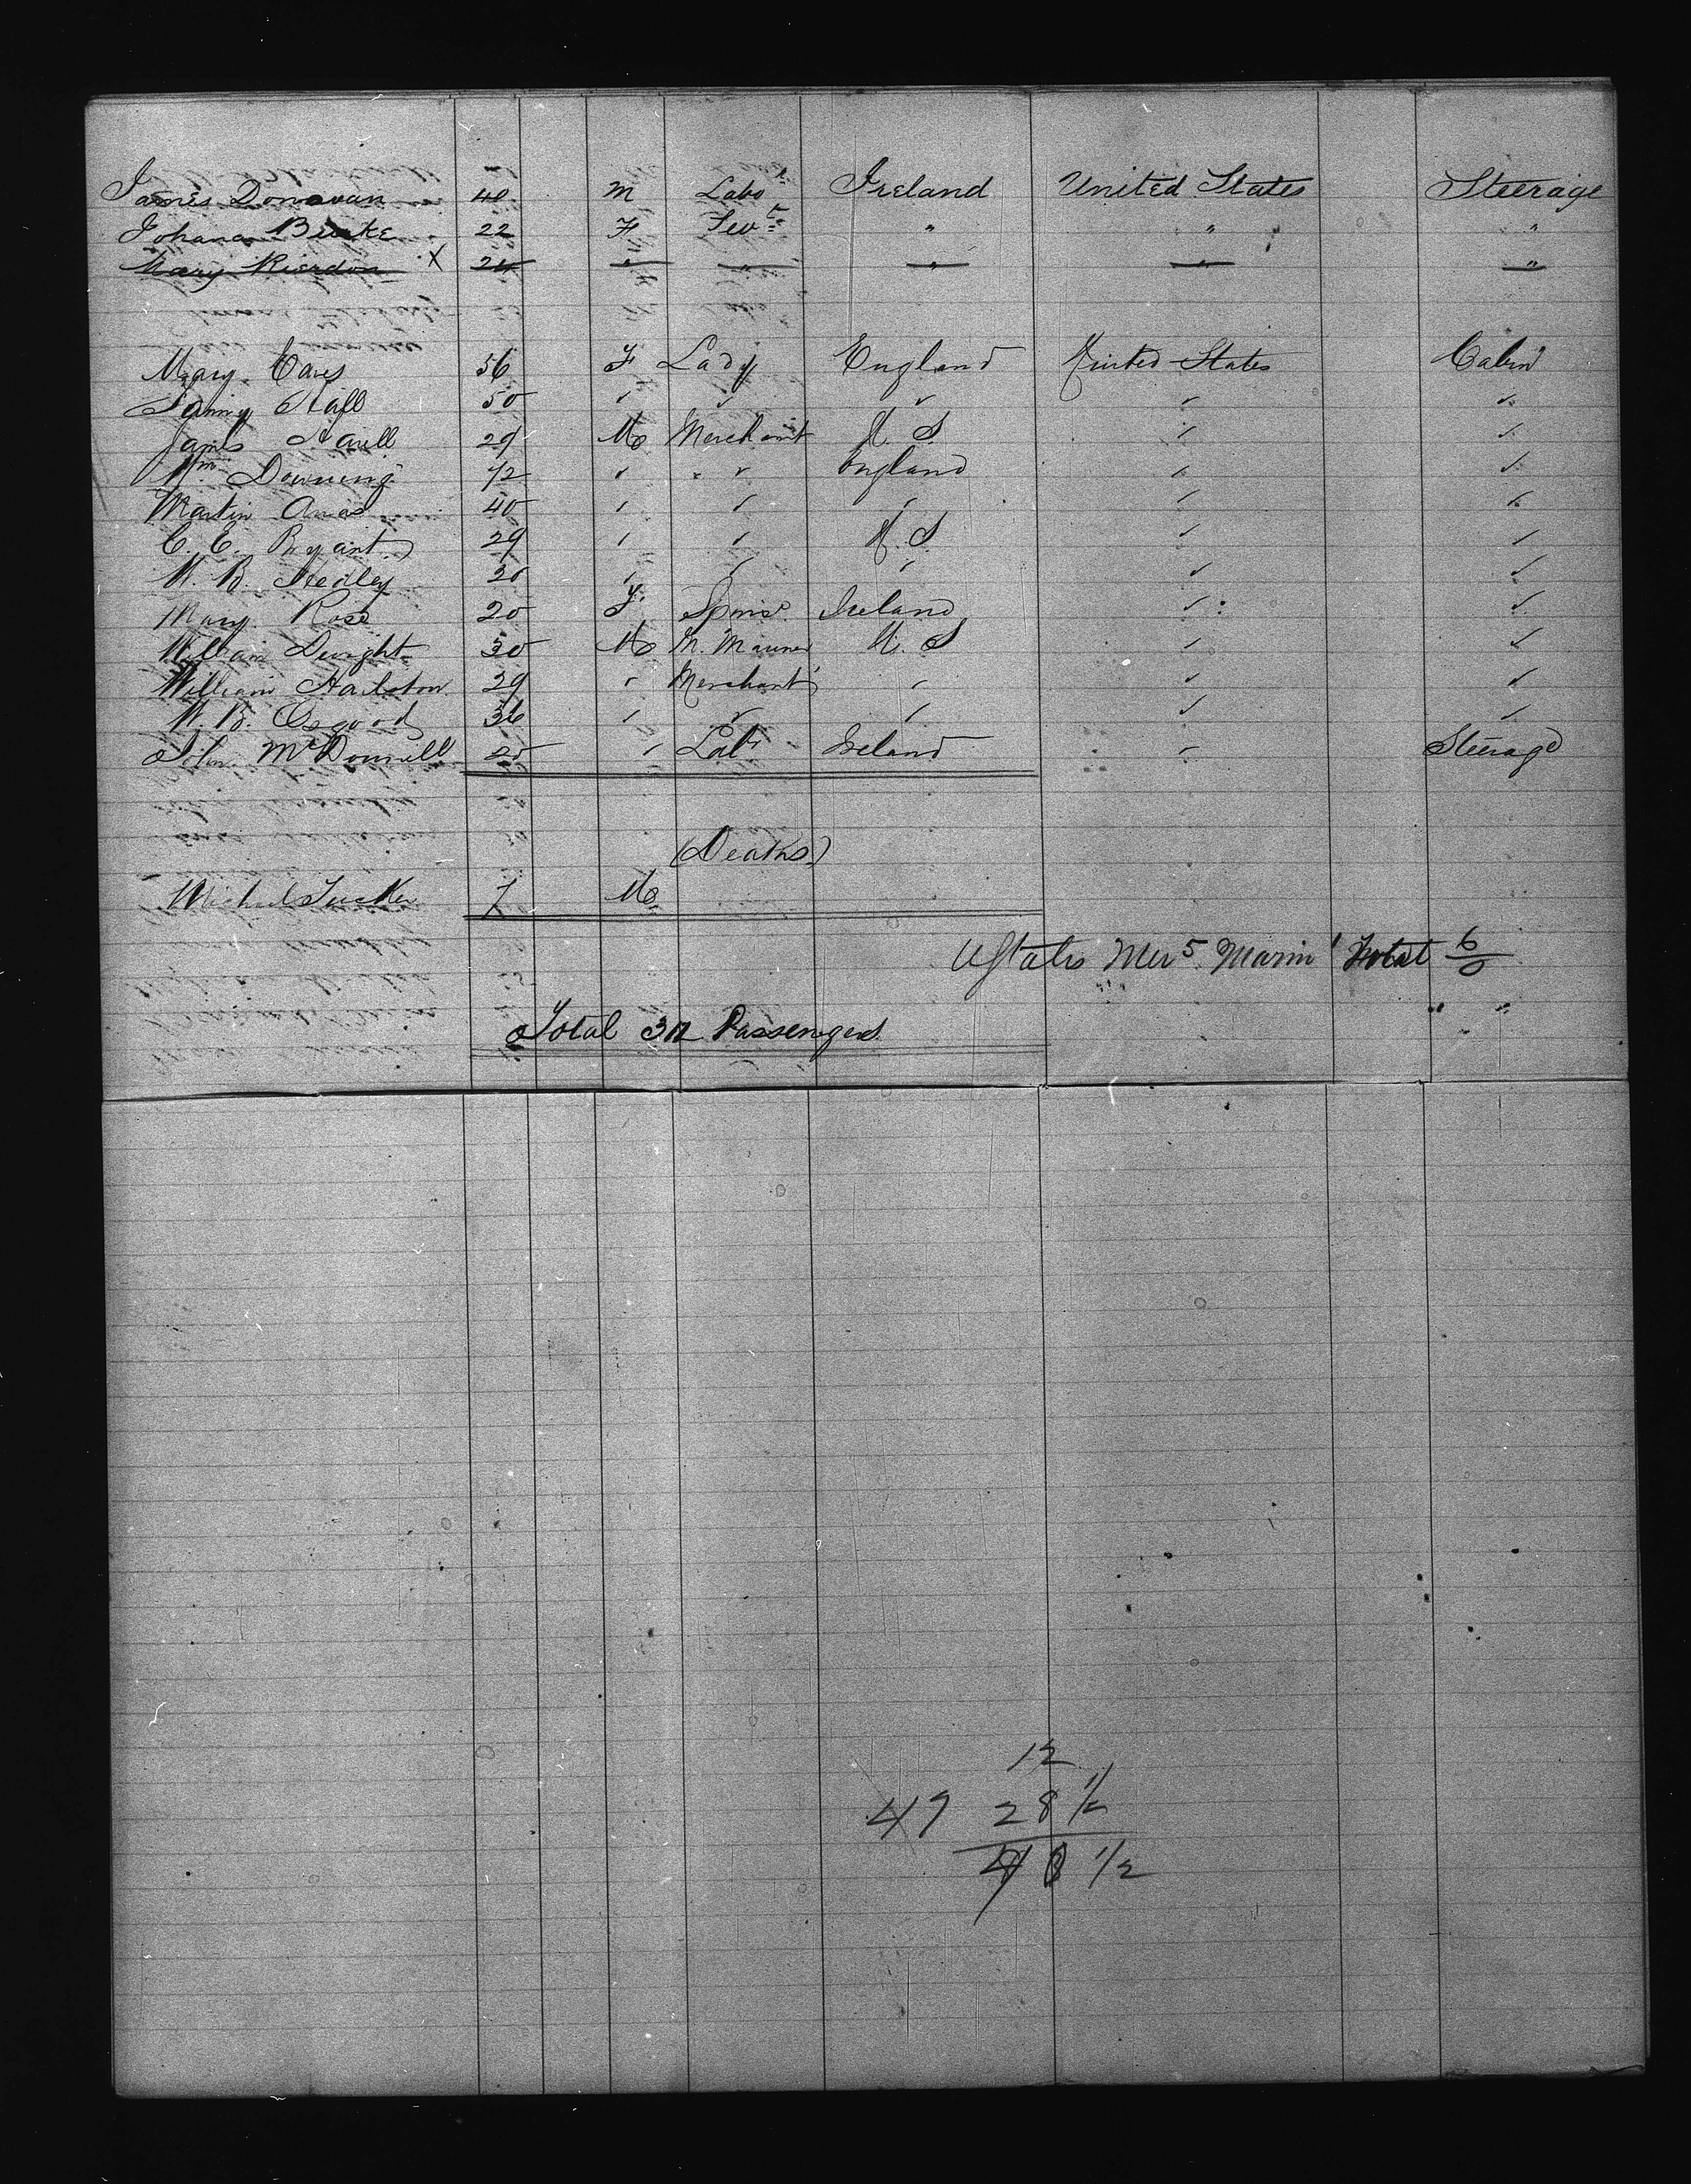 James Donovan 40 M Labor Ireland United States Steerage
Johana Burke 22 F Sevt " " "
Mary Riordon X 24 " " " " "
Mary 56 F Lady England United States Cabin
Fanny 50 ✓ ✓ ✓ ✓ ✓
James 29 M Merchant U. S. ✓ ✓
Wm Downing 42 ✓ " ✓ England ✓ ✓
Martin 40 ✓ ✓ ✓ ✓ ✓
C. C. Bryant 29 ✓ ✓ U. S. ✓ ✓
W. B. 26 ✓ ✓ ✓ ✓ ✓
Mary Rose 20 F. Spinsr Ireland ✓ ✓
William Dwight 30 M M. Mariner U. S ✓ ✓
William Hailston 29 ✓ Merchant ✓ ✓ ✓
W. B. Osgood 36 ✓ ✓ ✓ ✓ ✓
John McDonnell 25 ✓ Labr Ireland ✓ Steerage
(Deaths)
Michael Tucker 7 M
UStates Mer 5 Marin 1 Total 6/0
" "
Total Passengers
12
47 28 1/2
1/2